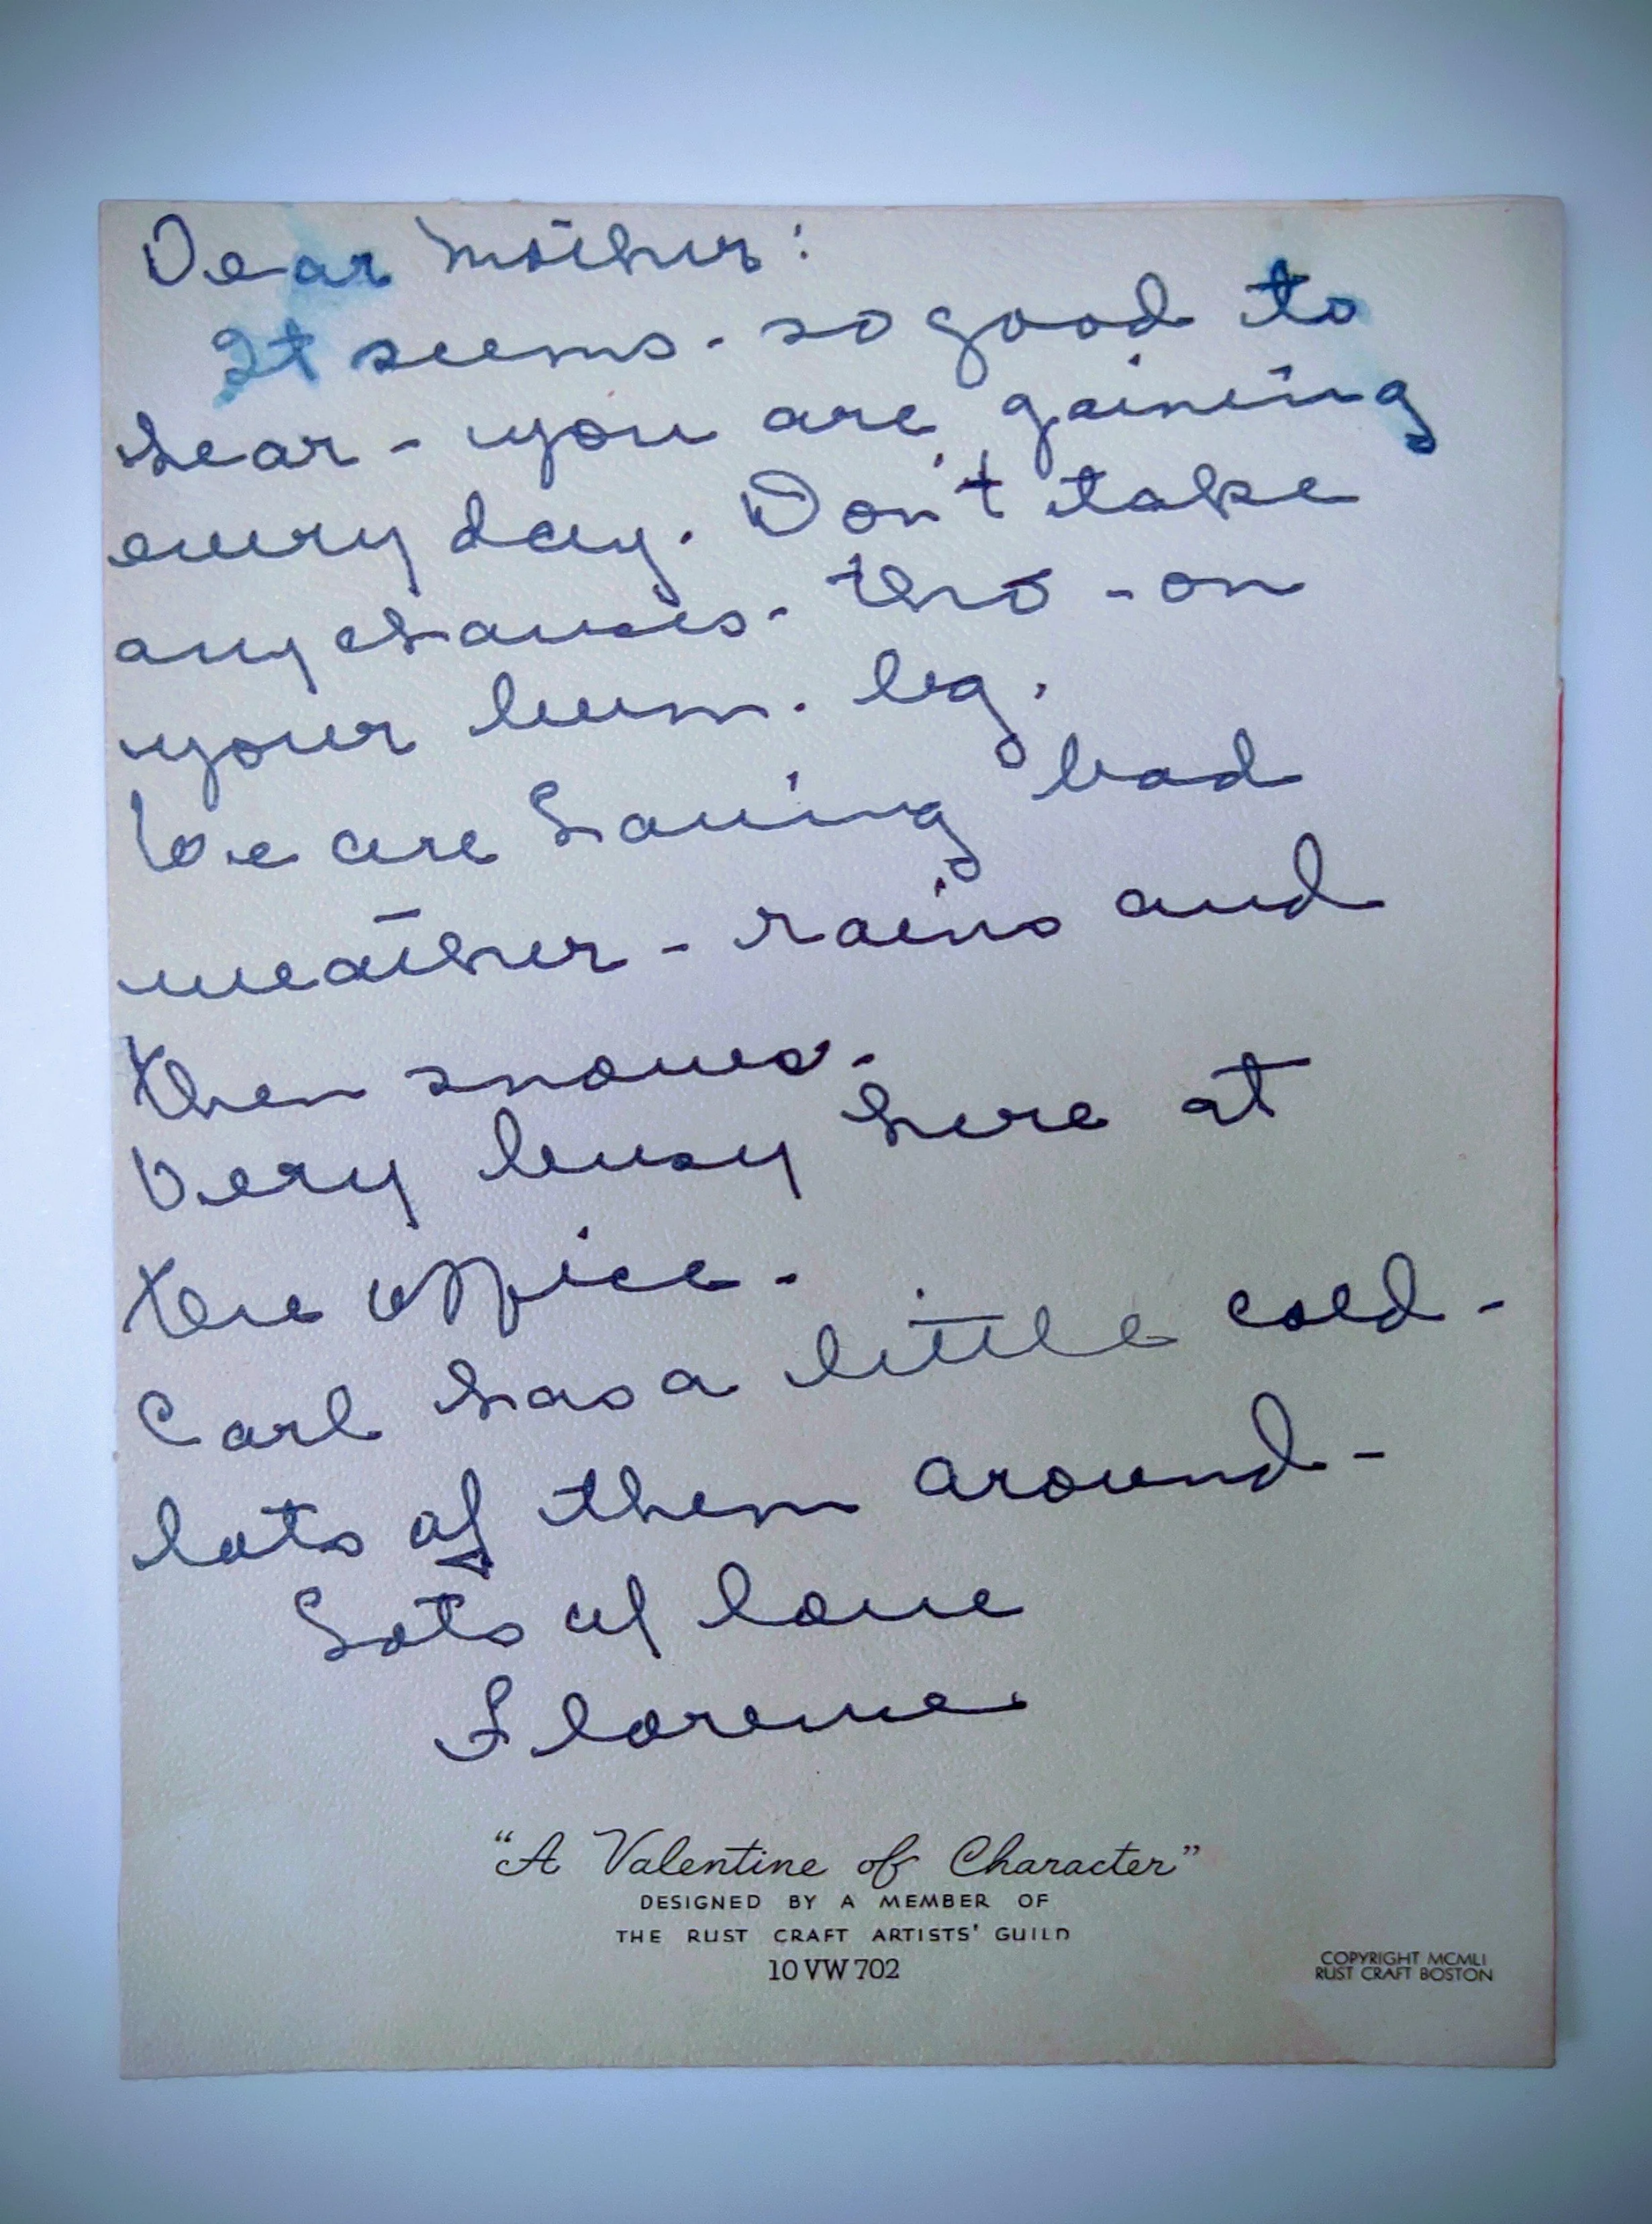 Dear Mother:
It seems - so good to
hear - you are gaining
every day. Don't take
any chances - tho - on
your bum. leg.
We are having bad
weather - rains and
then snows -
Very busy here at
the office -
Carl has a little cold -
lots of them around -
Lots of love
Florence
"A Valentine of Character"
DESIGNED BY A MEMBER OF
THE RUST CRAFT ARTISTS' GUILD
10 VW 702
COPYRIGHT MCMLI
RUST CRAFT BOSTON